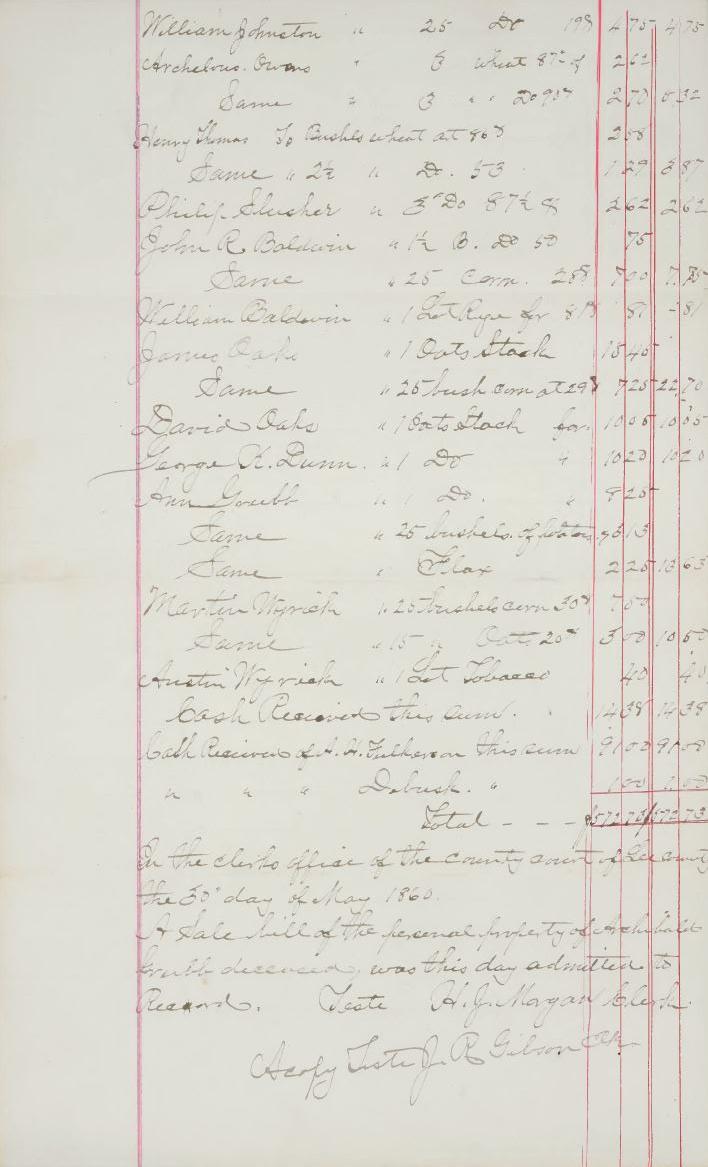 William Johnston " 25 Do 19¢ 4 75 4 75
Archelous Owens " 3 wheat 87½ 2 62
Same " 3 " " Do 90¢ 2 70 5 32
Henry Thomas To Bushes wheat at 86¢ 2 58
Same " 2½ " Do. 53 1 29 3 87
Philip Slusher " 3 Do 87½ 2 62 2 62
John R Baldwin " 1½ B. Do 50 75
Same " 25 corn. 28¢ 7 00 7.75
William Baldwin " 1 Lot Rye for 81¢ 81 - 81
James Oaks " 1 Oats Stack 15 45
Same " 25 bush corn at 29¢ 7 25 22,70
David Oaks " 1 Oats Stack for 10 05 10 05
George K. Dunn. " 1 Do " 10 20 10 20
Ann Grubb " 1 Do. " 8 25
Same " 25 bushels of potatoes 3 13
Same " Flax 2 25 13 63
Martin Wyrick " 25 bushels corn 30¢ 7 50
Same " 15 " Oats 20¢ 3 00 10 50
Austin Wyrick " 1 Lot Tobacco 40 40
Cash Received this sum. 14 38 14 38
Cash Received of A. H. Fulkerson this sum 91 00 91 00
" " " Debusk. " 1 00 1.00
Total - - - $572 73 $572 73
In the clerks office of the county court of Lee county
the 30" day of May 1860.
A Sale bill of the personal property of Archibald
Grubb deceased, was this day admitted to
Record. Teste H. J. Morgan Clerk.
A copy Teste J. R Gibson Clk.